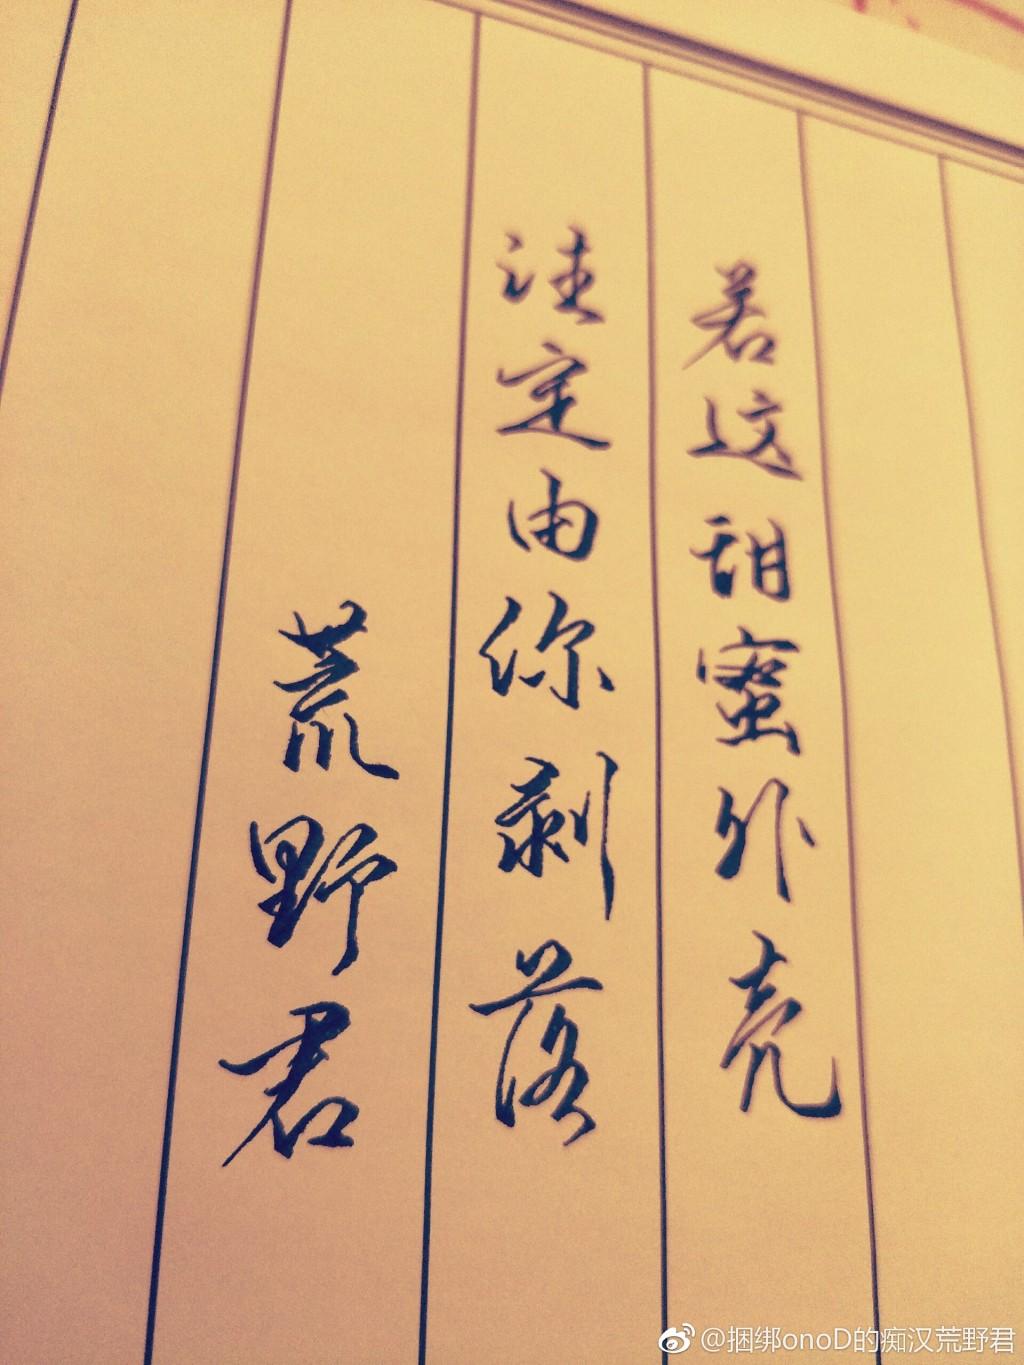 若这甜蜜外壳
注定由你剥落
荒野君
@捆绑onoD的痴汉荒野君